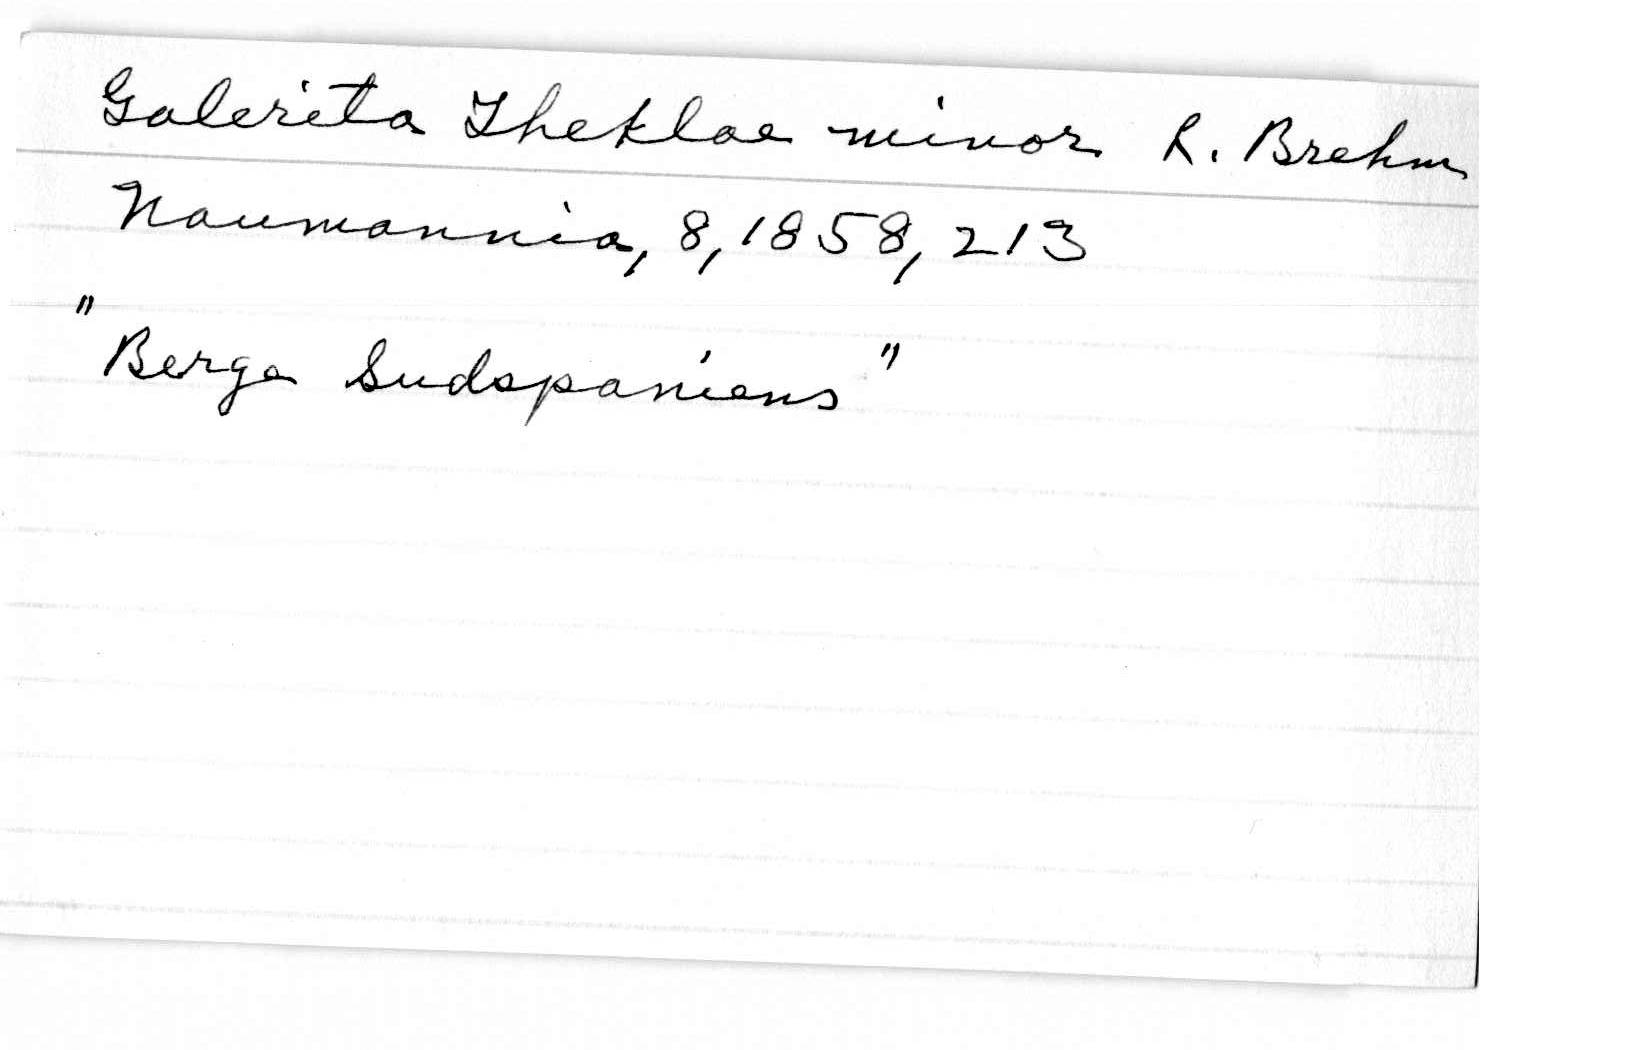 Galerita Theklae minor R. Brehm
Naumannia, 8, 1858, 213
"Berge Sudspaniens"